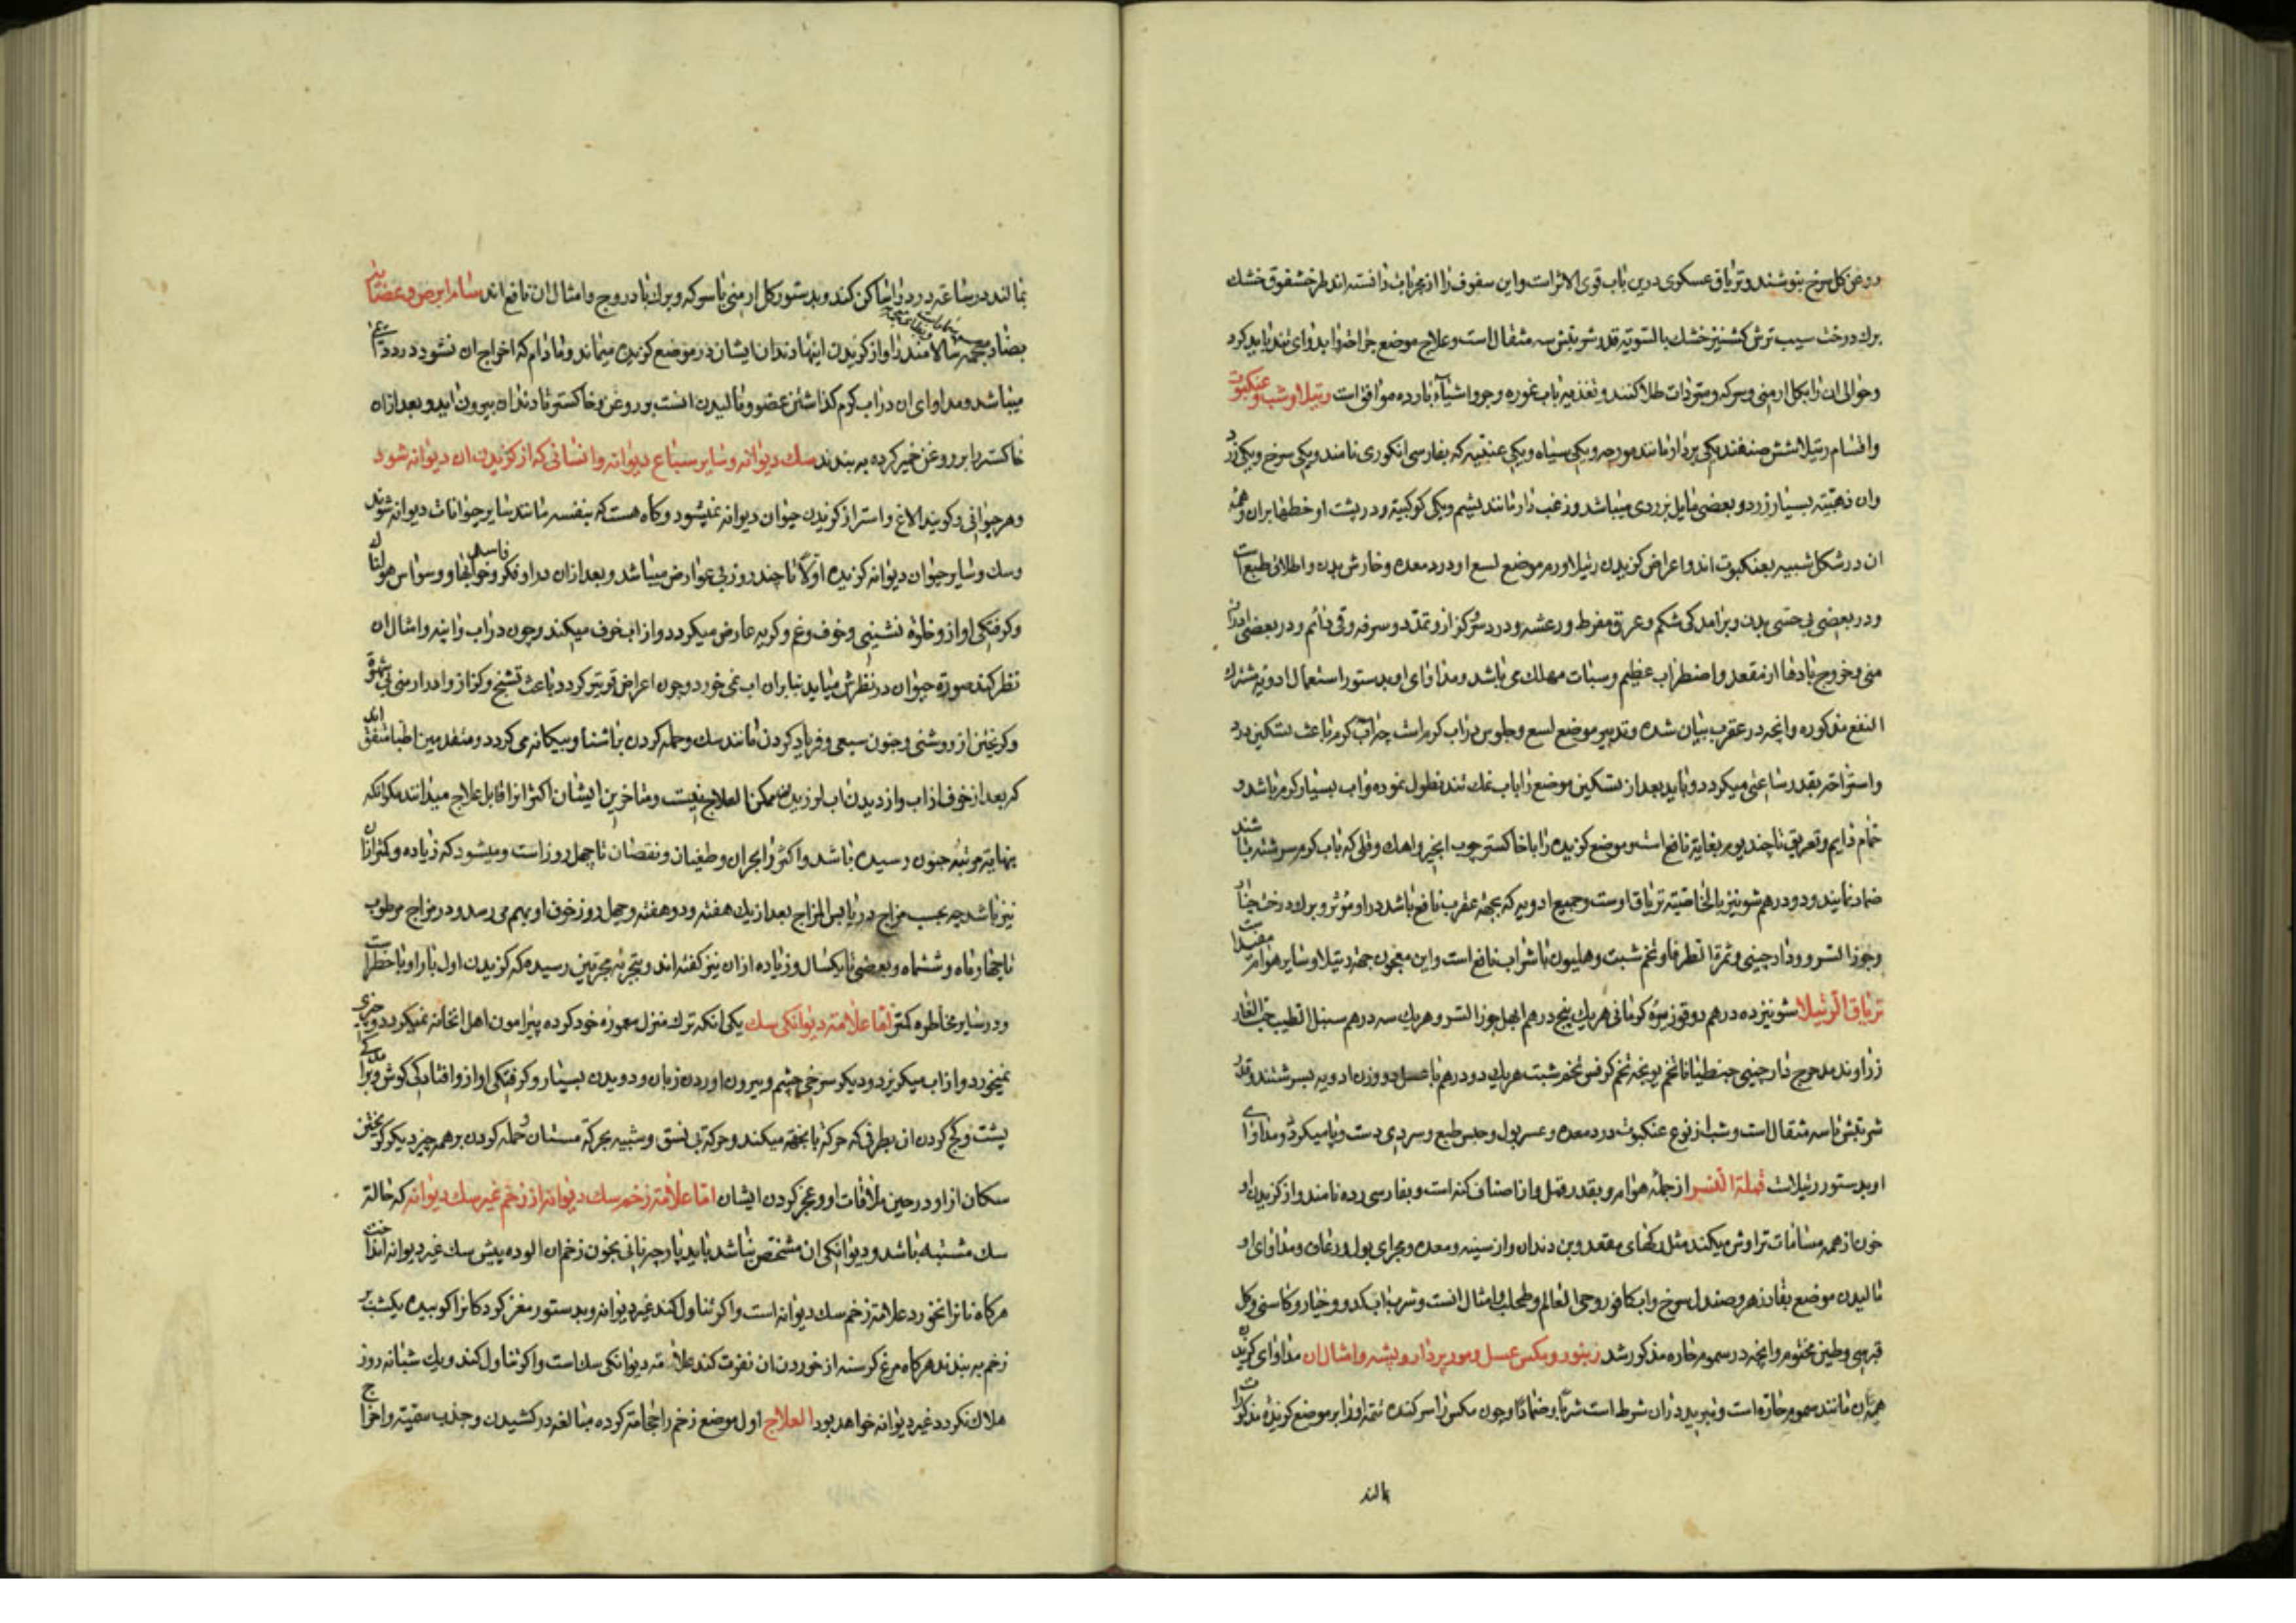 روغن کل سرخ بنوشند و تریاق عسکوی درین باب قوی الاثر است و این سفوف را از مجربات دانسته اند طرخشقوق خشك
برك درخت سیب ترش کشنیز خشك بالسویه قدر شربتش سه مثقال است و علاج موضع جراحت را بدوای تند باید کرد
و حوالی ان را بکل ارمنی و سرکه و مبردات طلا کنند و تغذیه باب غوره و جو و اشیاء بارده موافق است رتیلا و شب و عنکبوت
و اقسام رتیلا شش صنفند یکی پردار مانند مورچه و یکی سیاه و یکی عنبیه که بفارسی انکوری نامند و یکی سرخ و یکی زرد
وان ذهبیه بسیار زرد و بعضی مایل بزردی میباشد و زغب دار مانند پشم و یکی کوکبیه و در پشت او خطها بران و همه
ان در شکل شبیه بعنکبوت اند و اعراض کزیدن رتیلا ورم موضع لسع او درد معده و خارش بدن و اطلاق طبع است
و در بعضی بی حسی بدن و برامدکی شکم و عرق مفرط و رعشه و درد سر و کزاز و تمدد و سرفه و قی دائم و در بعضی ادرار
منی و خروج بادها از مقعد و اضطراب عظیم و سبات مهلك می باشد و مداوای او بدستور استعمال ادویه مشترك
النفع مذکوره و انچه در عقرب بیان شده و تدبیر موضع لسع و جلوس در اب کرم است چه اب کرم باعث تسکین درد
و استراحه بقدر ساعتی میکردد و باید بعد از تسکین موضع را باب نمك تند نطول نموده و اب بسیار کرم باشد و
حمام دایم و تعریق تا چند یوم بغایة نافع است و موضع کزیده را با خاکستر چوب انجیر و اهك و قلی که باب کرم سرشته باشند
ضماد نمایند و دو درهم شونیز بالخاصیة تریاق اوست و جمیع ادویه که بجهة عقرب نافع باشد در او مؤثر و برك درخت چنار
و جوز السرو و دارچینی و ثمرة الطرفا و تخم شبت و هلیون با شراب نافع است و این معجون جهة رتیلا و سایر هوام مفید است
تریاق الرتیلا شونیز ده درهم دوقو زیره کرمانی هر یك پنج درهم ابهل جوز السرو هر یك سه درهم سنبل الطیب حب الغار
زراوند مدحرج دارچینی جنطیانا تخم یونجه تخم کرفس تخم شبت هر یك دو درهم با عسل دو وزن ادویه بسرشند و قدر
شربتش تا سه مثقال است و شب از نوع عنکبوت درد معده و عسر بول و حبس طبع و سردی دست و پا میکردد و مداوای
او بدستور رتیلاست قملة النسر از جمله هوام و بقدر قمل و از اصناف کنه است و بفارسی رده نامند و از کزیدن او
خون از همه مسامات تراوش میکند مثل رکهای مقعد و بن دندان و از سینه و معده و مجرای بول و رعاف و مداوای او
مالیدن موضع بفادزهر و صندل سرخ و اب کافور و حی العالم و طحلب و امثال انست و شرب اب کدو و خیار و کاسنی و کل
قبرسی و طین مختوم و انچه در سموم حاره مذکور شد زنبور و مکس عسل و مور پردار و پشه و امثال ان مداوای کزیدن
همه ان مانند سموم حاره است و تبرید دران شرط است شربا و ضمادا و چون مکس را سر کنده تتمه او را بر موضع کزیده مذکورات
مالند
بمالند در ساعة درد را ساکن کند و بدستور کل ارمنی با سرکه و برك بادروج و امثال ان نافع اند سام ابرص و عضایه
بضاد معجمه سالامندرا و از کزیدن اینها دندان ایشان در موضع کزیده میماند و مادام که اخراج ان نشود درد
میباشد و مداوای ان در اب کرم کذاشتن عضو و مالیدن انست بروغن و خاکستر تا دندان بیرون اید و بعد ازان
خاکستر را بروغن خمیر کرده به بندند سك دیوانه و سایر سباع دیوانه و انسانی که از کزیدن ان دیوانه شود
و هر حیوانی و کویند الاغ و استر از کزیدن حیوان دیوانه نمیشود و کاه هست که بنفسه مانند سایر حیوانات دیوانه شوند
و سك و سایر حیوان دیوانه کزیده اولا تا چند روز بی عوارض میباشد و بعد ازان در او فکر و خوابهای فاسد و وسواس هولناك
و کرفتکی اواز و خلوة نشینی و خوف و غم و کریه عارض میکردد و از اب خوف میکند و چون در اب و اینه و امثال ان
نظر کند صورة حیوان در نظرش میاید بنا بران اب نمی خورد و چون اعراض قویتر کردد باعث تشنج و کزاز و ادرار منی بی شهوة
و کریختن از روشنی و جنون سبعی و فریاد کردن مانند سك و حمله کردن باشنا و بیکانه می کردد و متقدمین اطبا متفق اند
که بعد از خوف از اب و از دیدن اب لرزیدن ممکن العلاج نیست و متاخرین ایشان اکثر انرا قابل علاج میدانند مکر انکه
بنهایة مرتبه جنون رسیده باشد و اکثر را بحران و طغیان و نقصان تا چهل روز است و میشود که زیاده و کمتر ازان
نیز باشد چه بحسب مزاج در یابس المزاج بعد از یك هفته و دو هفته و چهل روز خوف او بهم می رسد و در مزاج مرطوب
تا چهار ماه و ششماه و بعضی تا یکسال و زیاده از ان نیز کفته اند و بتجربه مجربین رسیده که کزیدن اول بار او با خطر است
و در سایر مخاطره کمتر اما علامة دیوانکی سك یکی انکه ترك منزل معموره خود کرده پیرامون اهل انخانه نمیکردد و چیزی
نمیخورد و از اب میکریزد و دیکر سرخی چشم و بیرون اوردن زبان و دویدن بسیار و کرفتکی اواز و افتادکی کوش و برامدکی
پشت و کج کردن ان بطرفی که حرکة بانجهة میکند و حرکة بی نسق و شبیه بحرکة مستان و حمله کردن بر همه چیز دیکر کریختن
سکان از او در حین ملاقات او و عجز کردن ایشان اما علامة زخم سك دیوانه از زخم غیر سك دیوانه که حالة
سك مشتبه باشد و دیوانکی ان مشخص نباشد باید پارچه نانی بخون زخم ان الوده پیش سك غیر دیوانه انداخت
هرکاه نانرا نخورد علامة زخم سك دیوانه است و اکر تناول کند غیر دیوانه و بدستور مغز کردکانرا کوبیده یکشب بر
زخم به بندند هرکاه مرغ کرسنه از خوردن ان نفرت کند علامة دیوانکی سك است و اکر تناول کند و یك شبانه روز
هلاك نکردد غیر دیوانه خواهد بود العلاج اول موضع زخم را حجامة کرده مبالغه در کشیدن و جذب سمیة و اخراج